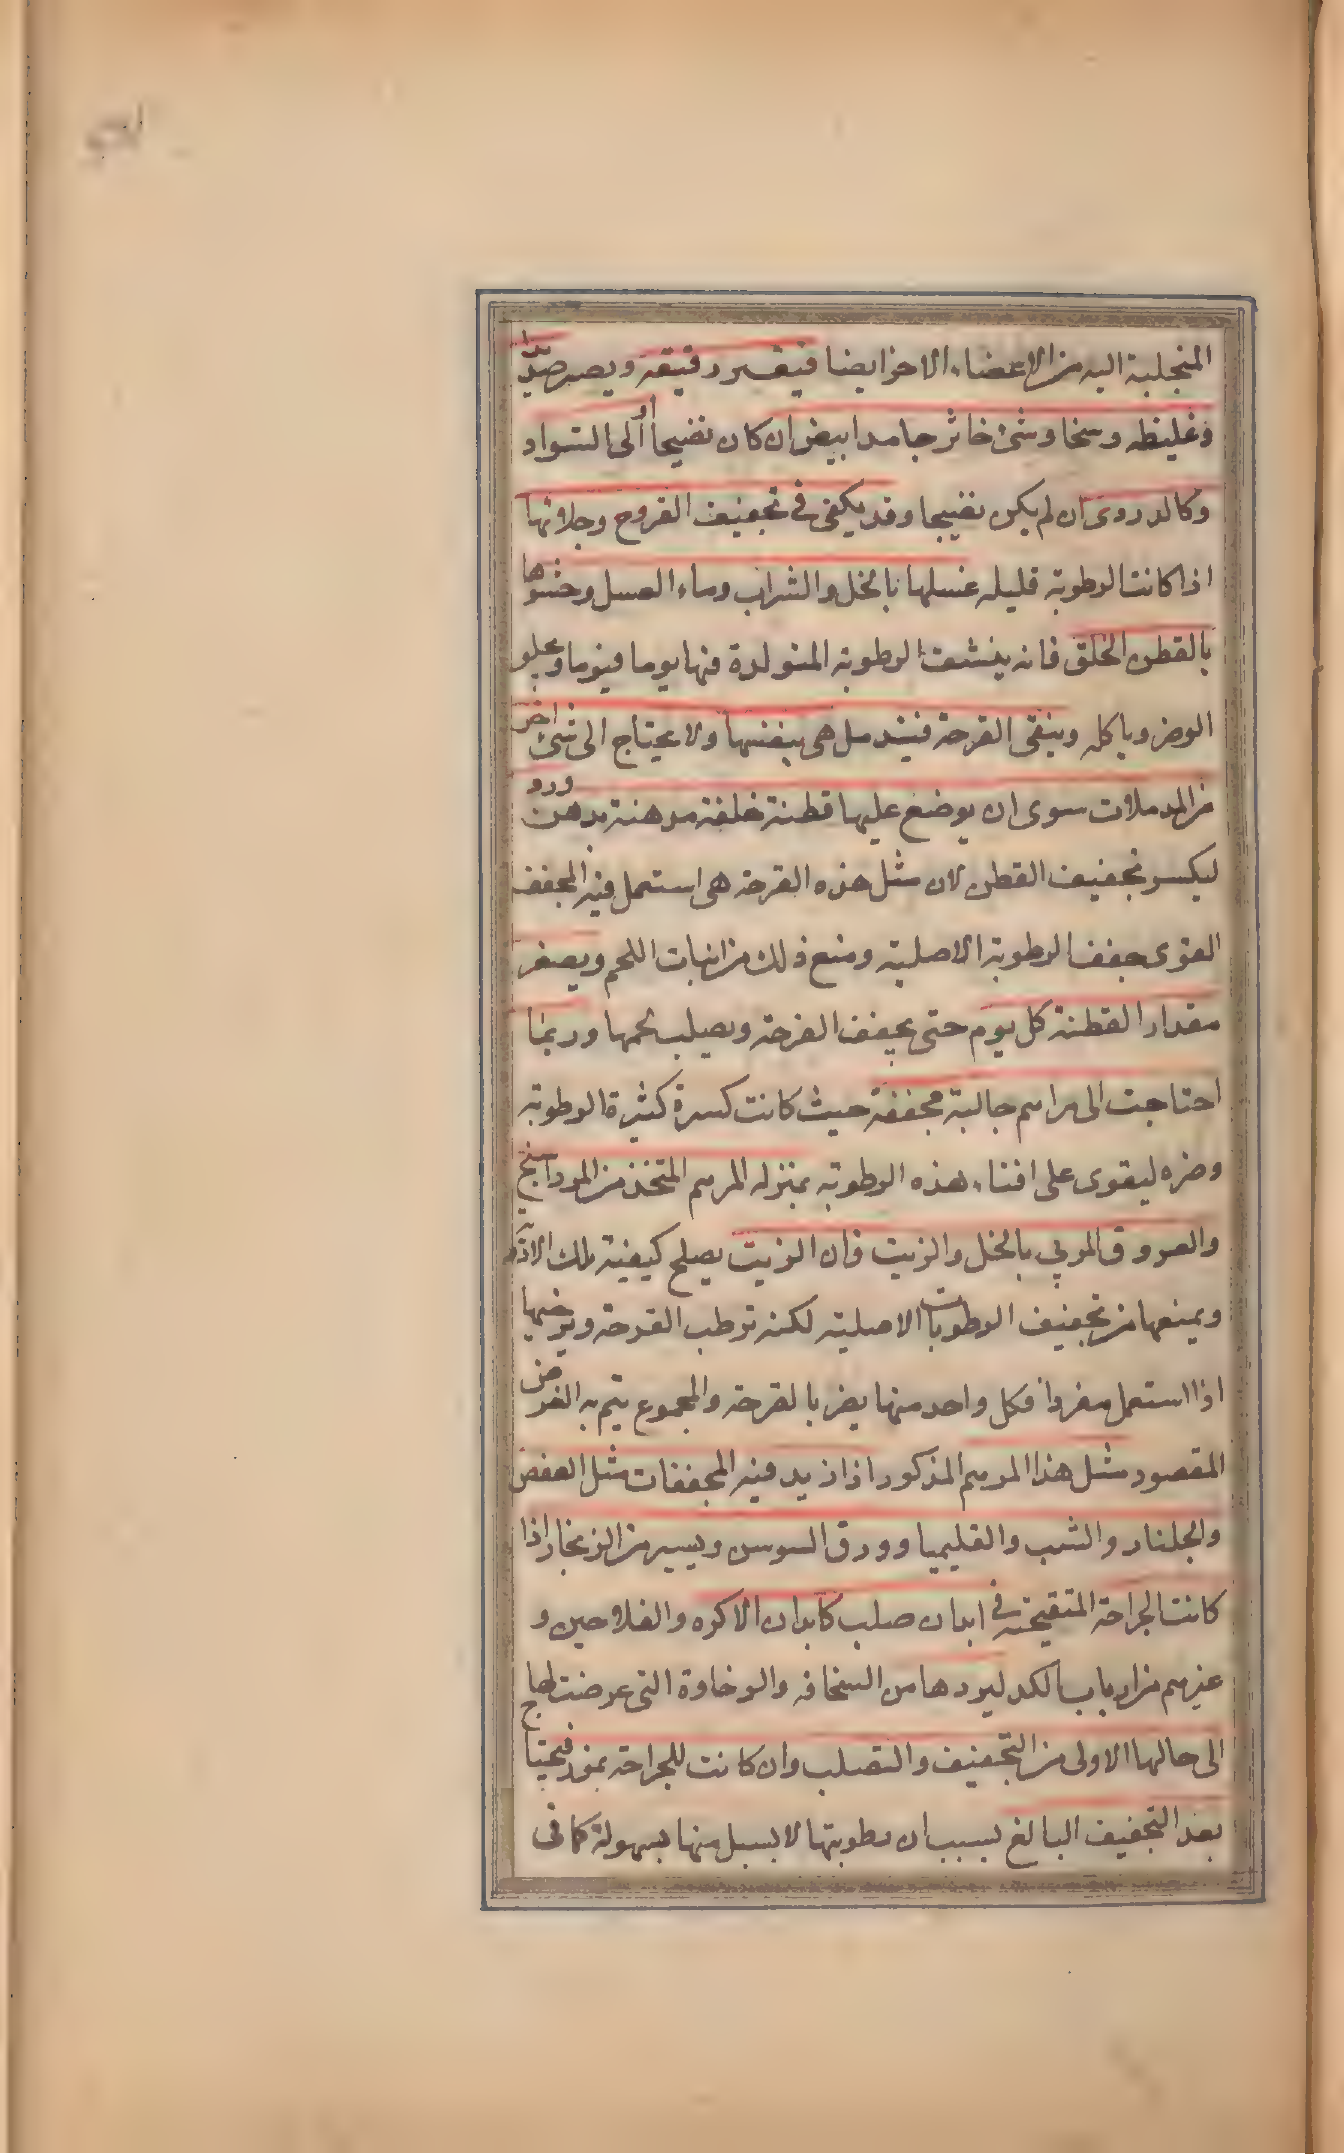 المنجلبة اليه من الاعضاء الاخر ايضا فيفسد رقيقه ويصير صديدا
وغليظه وسخا وشئ خاثر جامدا ابيض ان كان نضيجا أو الى السواد
وكالدردى ان لم يكن نضيجا وقد يكفى فى تجفيف القروح وجلائها
اذا كانت الرطوبة قليله غسلها بالخل والشراب وماء العسل وحشوها
بالقطن الخلق فانه ينشف الرطوبة المتولدة فيها يوما فيوما ويجلو
الوضر وياكله وينقى القرحة فيندمل هى بنفسها ولا يحتاج الى شئ اخر
من المدملات سوى ان يوضع عليها قطنة خلقة مدهنة بدهن ورد
ليكسر تجفيف القطن لان مثل هذه القرحة هى استعمل فيه المجفف
القوى جفف الرطوبة الاصلية ومنع ذلك من انبات اللحم ويصغر
مقدار القطنة كل يوم حتى يجفف القرحة ويصلب لحمها وربما
احتاجت الى مراهم جالية مجففة حيث كانت كسرة كثيرة الرطوبة
وضره ليقوى على افناء هذه الرطوبة بمنزله المرهم المتخذ من المرداسنج
والعروق المربى بالخل والزيت فان الزيت يصلح كيفية تلك الادوية
ويمنعها من تجفيف الرطوبات الاصلية لكنه ترطب القرحة ويرخيها
اذا استعمل مفردا فكل واحد منها يضر بالقرحة والمجموع يتم به الغرض
المقصود مثل هذا المرهم المذكور اذا زيد فيه المجففات مثل العفص
والجلنار والشب والقليميا وورق السوسن ويسير من الزنجار اذا
كانت الجراحة المتقيحة فى ابدان صلبه كابدان الاكره والفلاحين و
غيرهم من ارباب الكد ليردها من السخافه والرخاوة التى عرضت لها
الى حالها الاولى من التجفيف والتصلب وان كانت للجراحة بغور فيحتاج
بعد التجفيف البالغ بسبب ان رطوبتها لا يسيل منها بسهولة كما فى